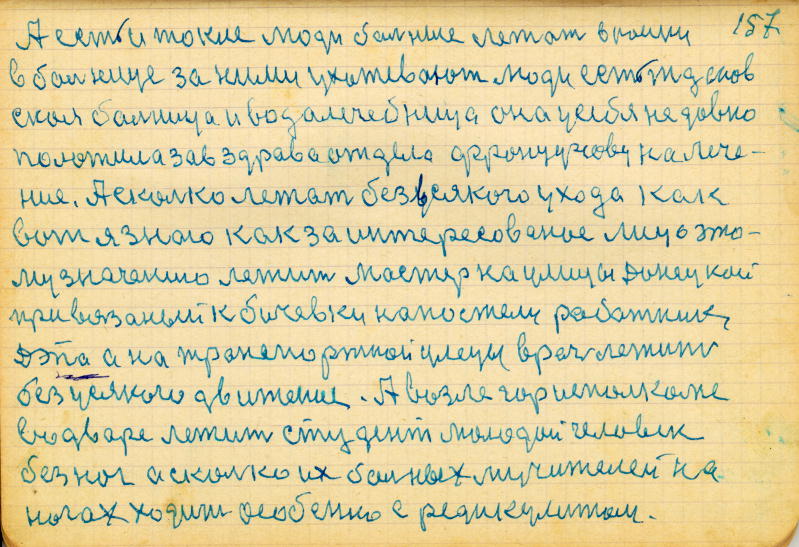 157
А есть и токие люди болние летат в коики
в болнице за ними ухотевоют люди есть
ская болница и водалечебница она усебя недовно
положила зав здраваотдела на лече-
ние. А сколко летат без всякого ухода как
вот я зною как за интересованое лицо это-
му значению летит мастер на улицы Донецкой
привязаный к бичевки на постели работник
Дэпа а на транспортной улецы врач летит
без усякого движение. А возле горисполкоме
во дваре летит студент молодой человек
без ног а сколко их болных мучителей на
ногах ходит особенно с редикулитом.